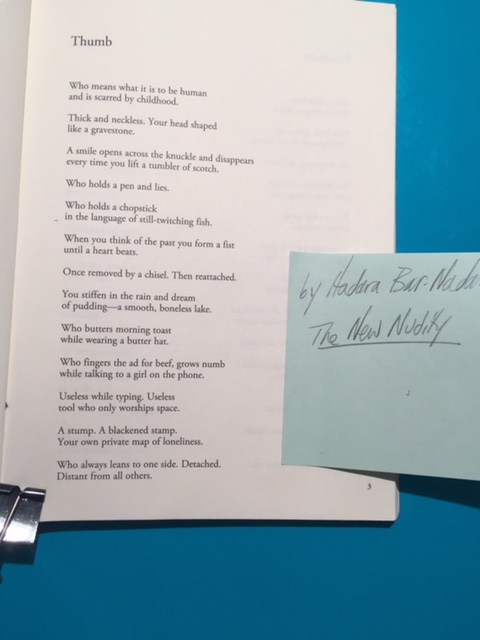 Thumb
Who means what it is to be human
and is scarred by childhood.
Thick and neckless. Your head shaped
like a gravestone.
A smile opens across the knuckle and disappears
every time you lift a tumbler of scotch.
Who holds a pen and lies.
Who holds a chopstick
in the language of still-twitching fish.
When you think of the past you form a fist
until a heart beats.
Once removed by a chisel. Then reattached.
You stiffen in the rain and dream
of pudding—a smooth, boneless lake.
Who butters morning toast
while wearing a butter hat.
Who fingers the ad for beef, grows numb
while talking to a girl on the phone.
Useless while typing. Useless
tool who only worships space.
A stump. A blackened stamp.
Your own private map of loneliness.
Who always leans to one side. Detached.
Distant from all others.
3
by Hadara Bar-Nada
The New Nudity